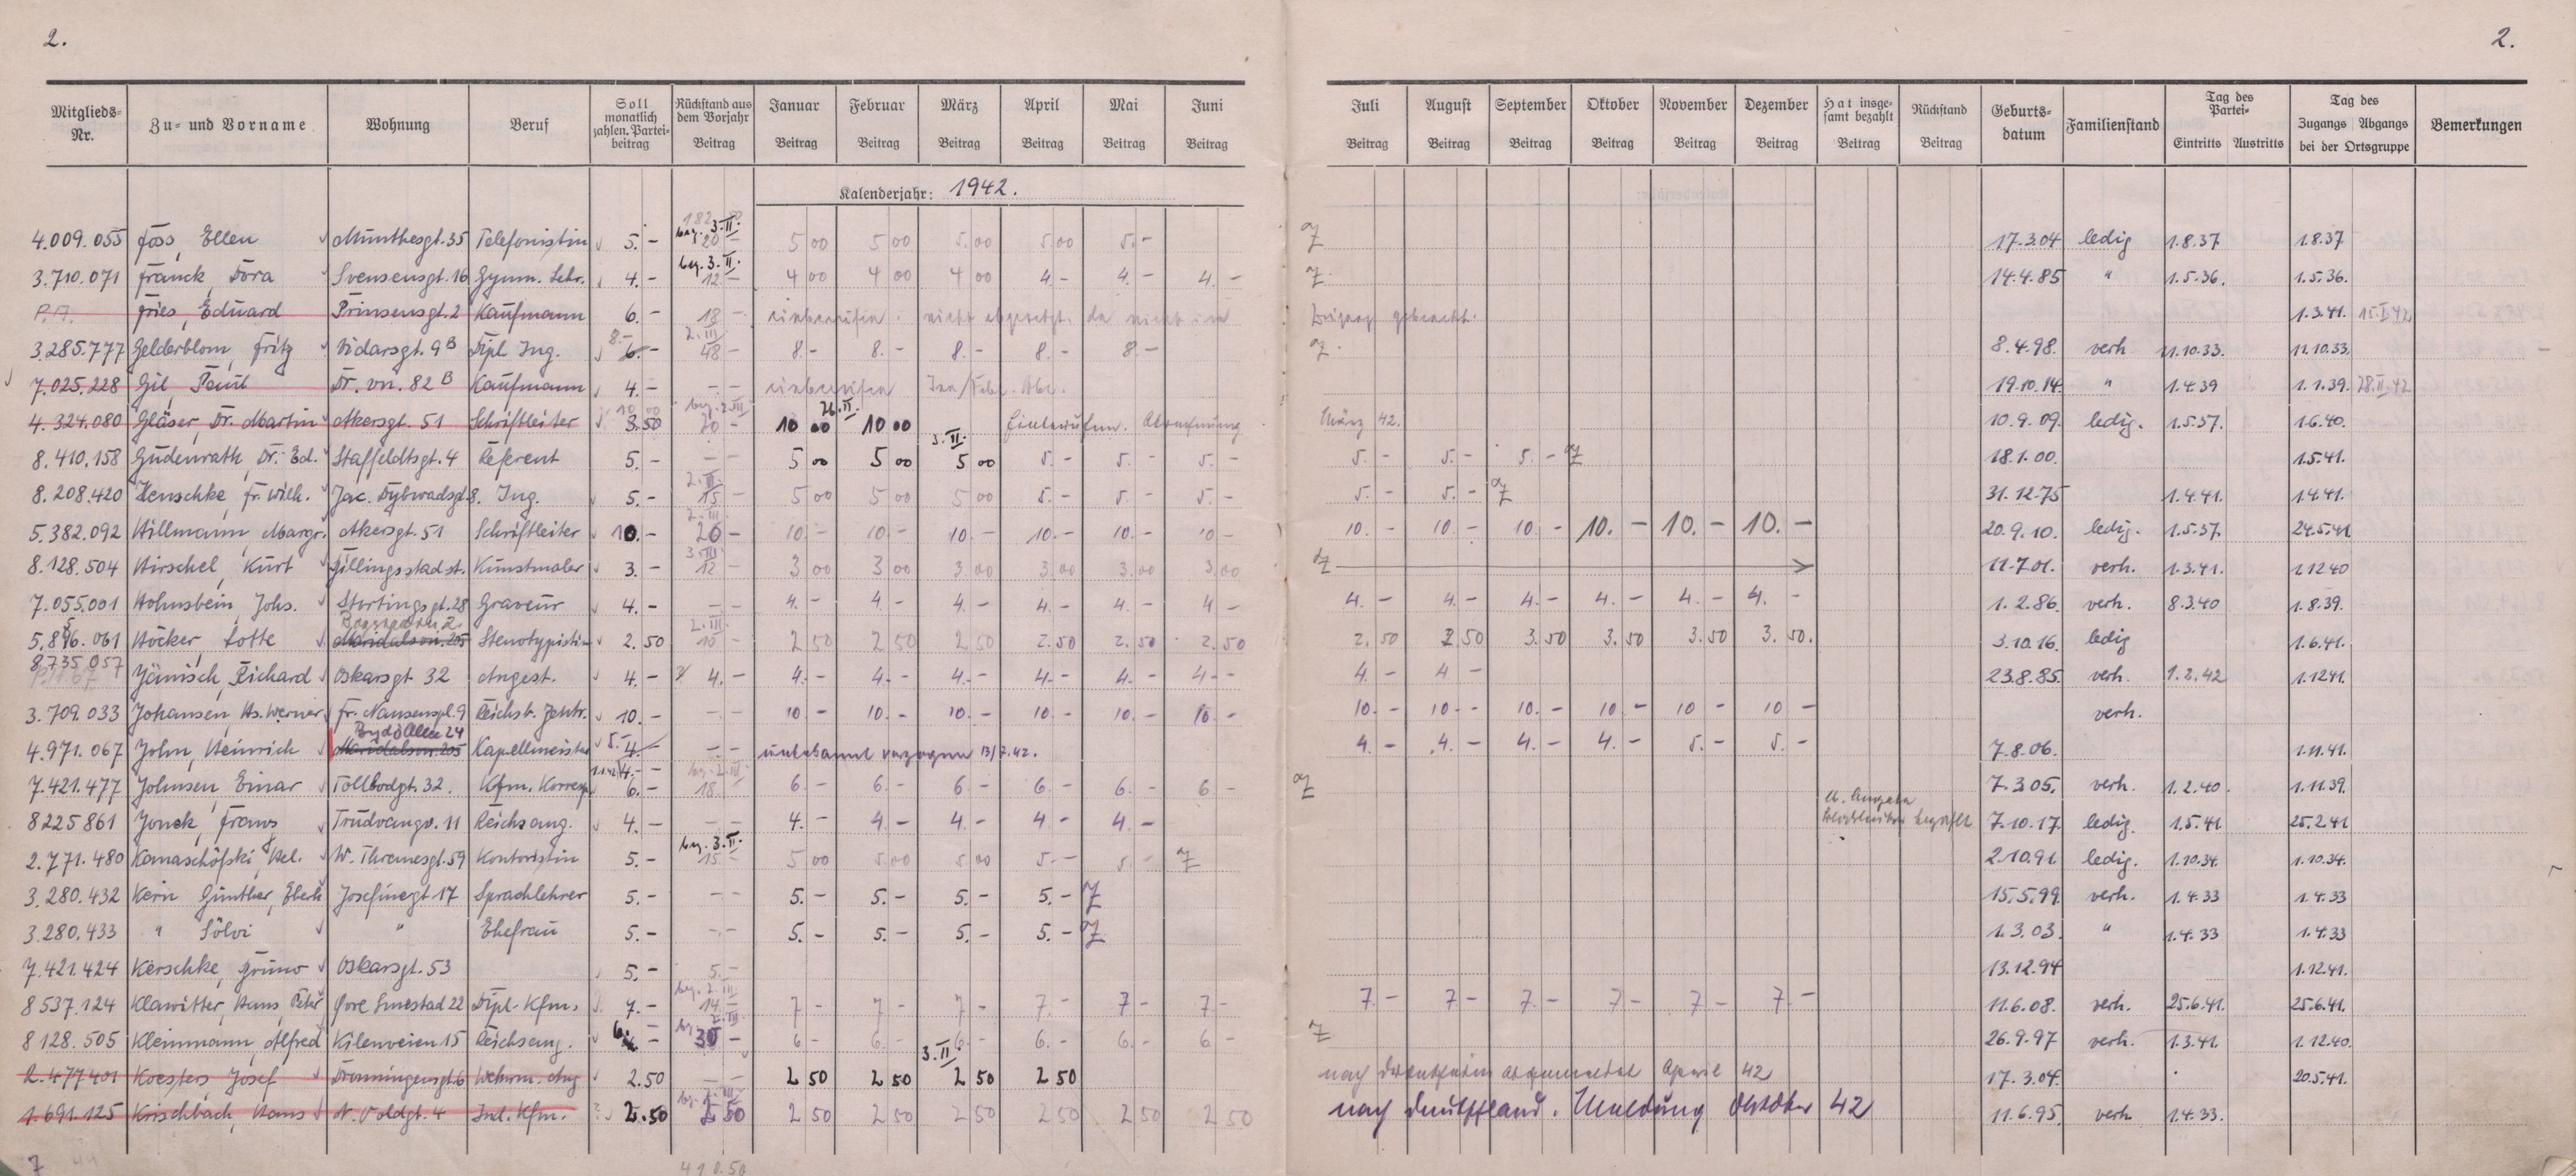 2.
2.
Mitglieds-Nr. Zu- und Vorname Wohnung Beruf Soll monatlich zahlen. Parteibeitrag Rückstand aus dem Vorjahr Beitrag Januar Beitrag Februar Beitrag März Beitrag April Beitrag Mai Beitrag Juni Beitrag Juli Beitrag August Beitrag September Beitrag Oktober Beitrag November Beitrag Dezember Beitrag Hat insgesamt bezahlt Beitrag Rückstand Beitrag Geburtsdatum Familienstand Tag des Partei- Eintritts Austritts Tag des Zugangs Abgangs bei der Ortsgruppe Bemerkungen
Kalenderjahr: 1942.
4.009.055 Foss, Ellen Munthesgt. 35 Telefonistin 5.- bez. 3.II. 20 - 5 00 5 00 5.00 5.00 5.- 17.3.04 ledig 1.8.37 1.8.37
3.710.071 Franck, Dora Svensensgt. 16 Gymn. Lehr. 4.- bez. 3.II. 12.- 4 00 4 00 4 00 4.- 4.- 4.- 14.4.85 " 1.5.36. 1.5.36.
P.A. Fries, Eduard Prinsensgt. 2 Kaufmann 6.- 18 - einberufen. nicht abgesetzt, da nicht in Zugang gebracht. 1.3.41. 15.I.42
3.285.777 Gelderblom, Fritz Vidarsgt. 9 B Dipl Ing. 8.- 6.- 2.III. 48 - 8.- 8.- 8.- 8.- 8.- 8.4.98. verh 11.10.33. 11.10.33.
7.025.228 Gil, Paul Dr. vn. 82 B Kaufmann 4.- -.- einberufen Jan/Febr. 19.10.14. " 1.4.39 1.1.39. 28.II.42
4.324.080 Gläser, Dr. Martin Akersgt. 51 Schriftleiter 10 00 3.50 bez. 2.III 20 - 10 00 26.II. 10 00 Einberufen. Abrechnung März 42. 10.9.09. ledig. 1.5.37. 1.6.40.
8.410.158 Gudenrath, Dr. Ed. Staffeldtsgt. 4 Referent 5.- -- 5 00 5 00 3.II. 5 00 5.- 5.- 5.- 5.- 5.- 5.- 18.1.00. 1.5.41.
8.208.420 Henschke, Fr. Wilh. Jac. Dybwadsgt. 8. Ing. 5.- 2.III. 15 - 5 00 5 00 5 00 5.- 5.- 5.- 5.- 5.- 31.12.75 1.4.41. 1.4.41.
5.382.092 Hillmann, Margr. Akersgt. 51 Schriftleiter 10.- 2.III. 20 - 10.- 10.- 10.- 10.- 10.- 10 - 10.- 10.- 10.- 10.- 10.- 10.- 20.9.10. ledig. 1.5.37. 24.5.41
8.128.504 Hirschel, Kurt Gillingsstad st. Kunstmaler 3.- 3.III. 12 - 3 00 3 00 3.00 3.00 3.00 3.00 11.7.01. verh. 1.3.41. 1.12.40
7.055.001 Hohnsbein, Johs. Stortingsgt. 28 Graveur 4.- -- 4.- 4.- 4.- 4.- 4.- 4.- 4.- 4.- 4.- 4.- 4.- 4.- 1.2.86. verh. 8.3.40 1.8.39.
5.896.061 Höcker, Lotte Maridalsvn. 205 Stenotypistin 2.50 2.III. 10 - 2 50 2 50 2 50 2.50 2.50 2.50 2.50 2 50 3.50 3.50 3.50 3.50. 3.10.16. ledig 1.6.41.
8735057 Jänisch, Richard Oskarsgt 32 Angest. 4.- 4.- 4.- 4.- 4.- 4.- 4.- 4.- 4.- 4 - 23.8.85. verh. 1.2.42 1.12.41.
3.709.033 Johansen, Hs. Werner Fr. Nansenspl. 9 Reichsb. Zentr. 10.- -.- 10 - 10.- 10.- 10.- 10.- 10.- 10.- 10.- 10.- 10.- 10 - 10 - verh.
4.971.067 John, Heinrich Bygdö Allee 24 Maridalsvn. 205 Kapellmeister 5.- 4.- -.- unbekannt verzogen 13/7.42. 4.- 4.- 4.- 4.- 5.- 5.- 7.8.06. 1.11.41.
7.421.477 Johnsen, Einar Tollbodgt. 32. Kfm. Korresp. 1.1.42 4.- 6.- bez. 2.III. 18 6.- 6.- 6.- 6.- 6.- 6 - 7.3.05. verh. 1.2.40. 1.11.39.
8225861 Jonek, Frans Trudvangv. 11 Reichsang. 4.- -- 4.- 4.- 4.- 4.- 4.- lt. Angabe bezahlt 7.10.17. ledig. 1.5.41 25.2.41
2.771.480 Kamaschöfski, Hel. W. Thranesgt. 59 Kontoristin 5.- bez. 3.II. 15.- 5 00 5.00 5.00 5.- 5.- 2.10.91. ledig. 1.10.34. 1.10.34.
3.280.432 Kern Günther, Eberh Josefinegt 17 Sprachlehrer 5.- -- 5.- 5.- 5.- 5.- 15.5.99. verh. 1.4.33 1.4.33
3.280.433 " Sölvi " Ehefrau 5.- -.- 5.- 5.- 5.- 5.- 1.3.03. " 1.4.33 1.4.33
7.421.424 Kerschke, Bruno Oskarsgt. 53 5.- 5.- 13.12.94 1.12.41.
8537.124 Klawitter, Hans Peter Övre Smestad 22 Dipl. Kfm. 7.- bez. 2.III. 14.- 7 - 7 - 7.- 7.- 7 - 7 - 7.- 7.- 7.- 7 - 7 - 7.- 11.6.08. verh. 25.6.41. 25.6.41.
8128.505 Kleinmann, Alfred Kilenveien 15 Reichsang. 6.- bez. 2.III 30 - 6.- 6.- 6.- 6.- 6.- 6.- 26.9.97 verh. 1.3.41. 1.12.40.
2.477401 Koesters, Josef Dronningensgt. 6 Wehrm. Ang 2.50 -- 2 50 2 50 3.II. 2 50 2 50 nach Drontheim abgemeldet April 42 17.3.04. 20.5.41.
1.691.125 Krischbach, Hans N. Voldgt. 4 Ind. Kfm. 2.50 bez. 2.III 2 50 2 50 2 50 2 50 2 50 2 50 2 50 nach Deutschland. Meldung Oktober 42 11.6.95 verh 1.4.33.
7
410.50